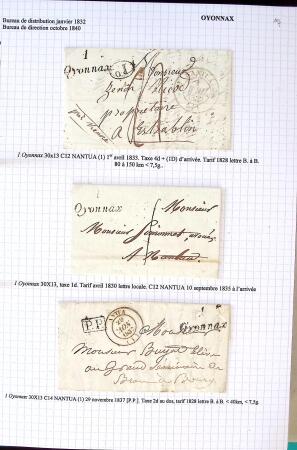 OYONNAX
Bureau de distribution janvier 1832
Bureau de direction octobre 1840
1
Oyonnax
Monsieur
propriétaire
A Estrablin
1 Oyonnax 30x13 C12 NANTUA (1) 1er avril 1833. Taxe 4d + (1D) d'arrivée. Tarif 1828 lettre B. à B.
80 à 150 km < 7,5g.
Oyonnax
Monsieur
Monsieur
A Nantua
1 Oyonnax 30X13, taxe 1d. Tarif avril 1830 lettre locale. C12 NANTUA 10 septembre 1835 à l'arrivée
P.P.
Oyonnax
Monsieur
au Grand Séminaire de
1 Oyonnax 30X13 C14 NANTUA (1) 29 novembre 1837 [P.P.]. Taxe 2d au dos, tarif 1828 lettre B. à B. < 40km, < 7,5g